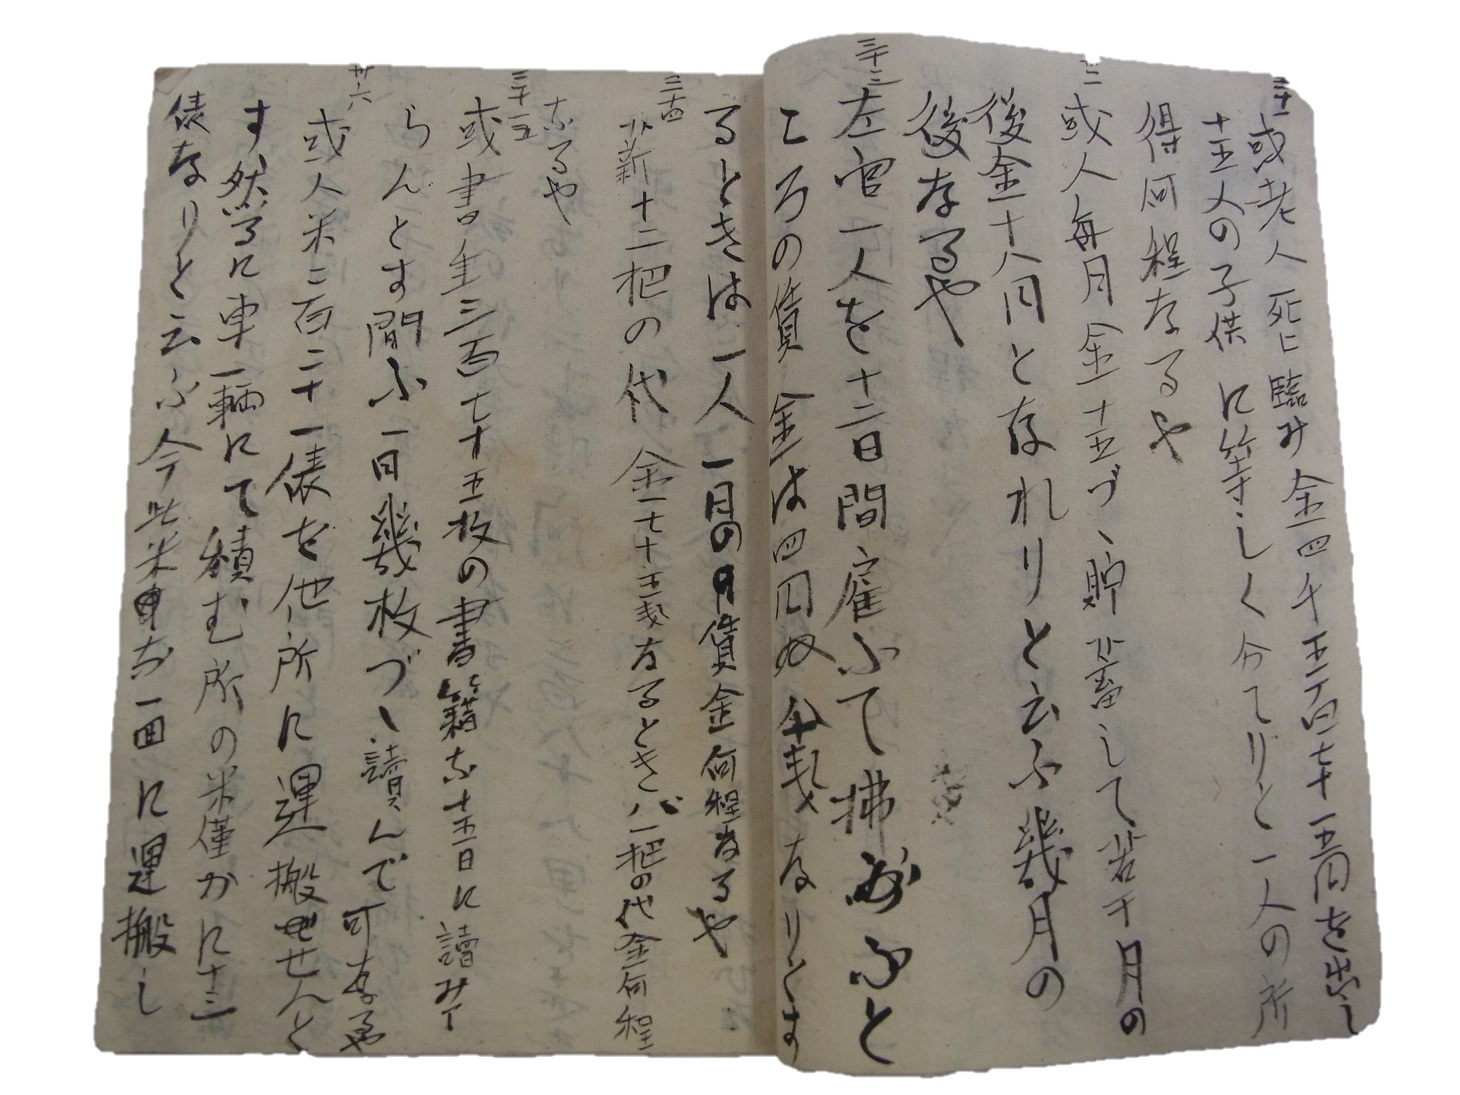 三十一
或老人死ニ臨み金四千五百七十一五円を出し
十五人の子供に等しく分てりと一人の所
得何程なるや
或人毎月金十五づゝ貯蓄して若干月の
後金十八円となれりと云ふ幾月の
後なるや
三十三
左官一人を十二日間雇ふて拂ふと
ころの賃金は四円 十銭なりとす
るときは一人一日の賃金何程なるや
三十四
薪十二把の代金七十五銭なるときバ一把の代金何程
なるや
三十五
或書生三百七十五枚の書籍を十五日に讀み了
らんとす間ふ一日幾枚づゝ讀んで可なるや
卅六
或人米二百二十一俵を他所に運搬せんと
す然るに車一輌にて積む所の米僅かに十三
俵なりと云ふ今此米を一回に運搬し